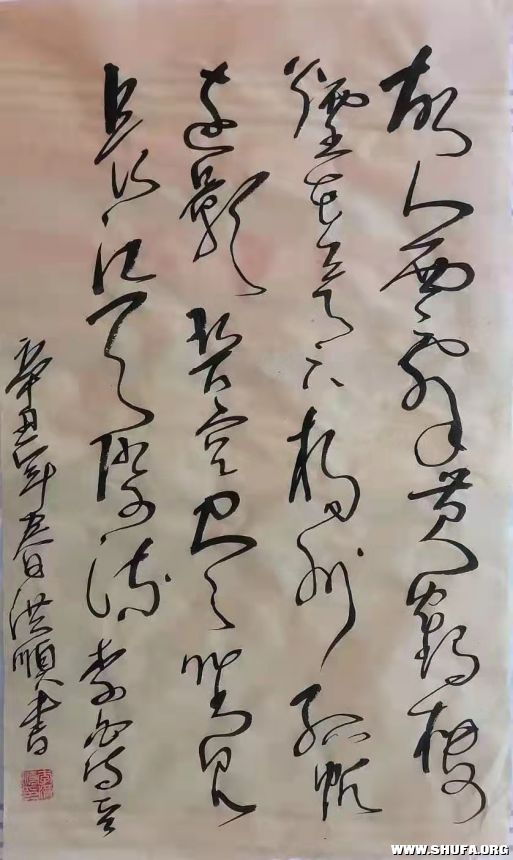 故人西辞黄鶴楼
煙花三月下揚州孤帆
遠影碧空尽唯見
長江天際流李白诗
辛丑年春日洪順書
WWW.SHUFA.ORG